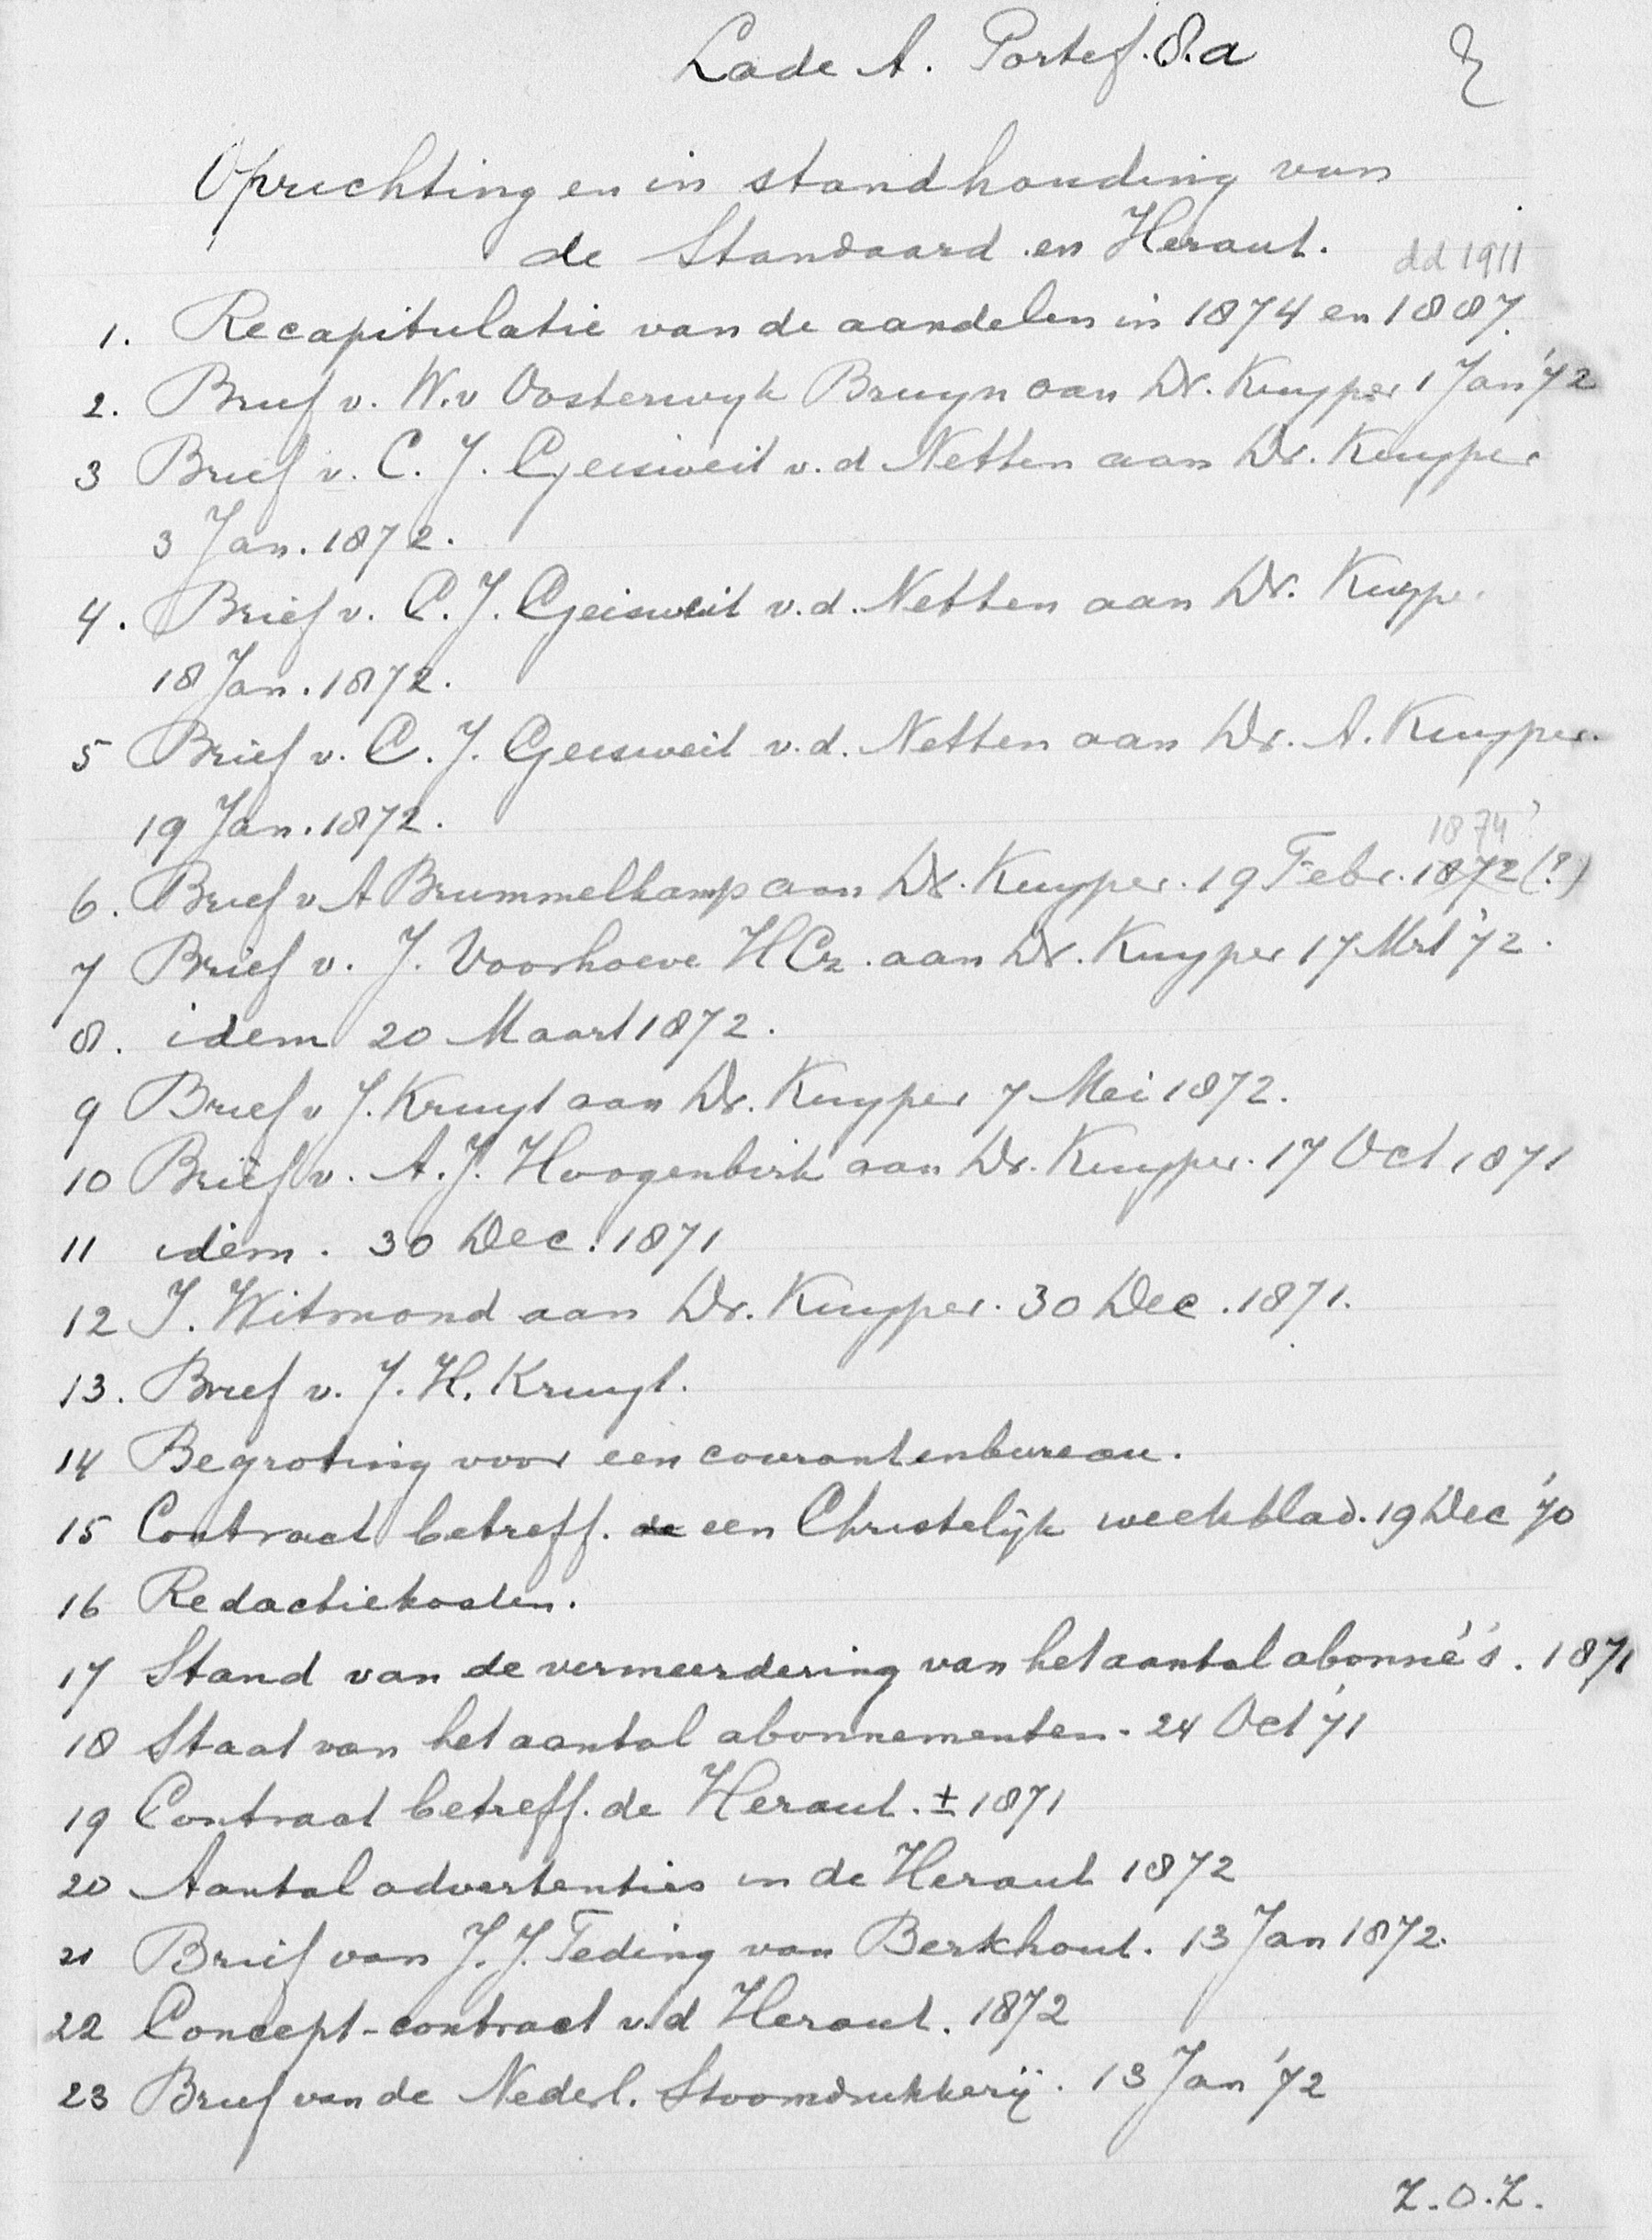 Lade A. Portef. 8.a
Oprichting en in standhouding van
de Standaard en Heraut.
dd 1911
1. Recapitulatie van de aandelen in 1874 en 1887.
2. Brief v. W. v Oosterwyk Bruyn aan Dr. Kuyper 1 Jan '72
3 Brief v. C. J. Geisweit v. d Netten aan Dr. Kuyper
3 Jan. 1872.
4. Brief v. C. J. Geisweit v. d. Netten aan Dr. Kuype.
18 Jan. 1872.
5 Brief v. C. J. Geisweit v. d. Netten aan Dr. A. Kuyper.
19 Jan. 1872.
1874?
6. Brief v A Brummelkamp aan Dr. Kuyper. 19 Febr. 1872 (?)
7 Brief v. J. Voorhoeve HCz. aan Dr. Kuyper 17 Mrt '72.
8. idem 20 Maart 1872.
9 Brief v J. Kruyt aan Dr. Kuyper 7 Mei 1872.
10 Brief v. A. J. Hoogenbirk aan Dr. Kuyper. 17 Oct 1871
11 idem. 30 Dec. 1871
12 J. Witmond aan Dr. Kuyper. 30 Dec. 1871.
13. Brief v. J. H. Kruyt.
14 Begroting voor een courantenbureau.
15 Contract betreff. de een Christelijk weekblad. 19 Dec '70
16 Redactiekosten.
17 Stand van de vermeerdering van het aantal abonné's. 1871
18 Staat van het aantal abonnementen. 24 Oct '71
19 Contract betreff. de Heraut. ± 1871
20 Aantal advertenties in de Heraut 1872
21 Brief van J. J. Teding van Berkhout. 13 Jan 1872.
22 Concept-contract v. d Heraut. 1872
23 Brief van de Nederl. Stoomdrukkerij. 13 Jan '72
Z.O.Z.